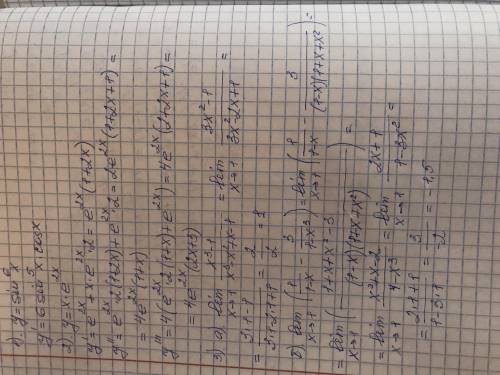 1) y = sin⁶x
y' = 6 sin⁵x · cos x
2) y = x e^{2x}
y' = e^{2x} + x e^{2x} · 2 = e^{2x}(1+2x)
y'' = e^{2x} · 2(1+2x) + e^{2x} · 2 = 2e^{2x}(1+2x+1) =
= 4e^{2x}(1+x)
y''' = 4(e^{2x} · 2(1+x) + e^{2x}) = 4e^{2x}(2+2x+1) =
= 4e^{2x}(2x+3)
3) а) lim_{x→1} (x³-1)/(x³-x²+x-1) = lim_{x→1} (3x²-1)/(3x²-2x+1) =
= (3·1-1)/(3·1-2·1+1) = 2/2 = 1
б) lim_{x→1} (1/(1-x) - 3/(1-x³)) = lim_{x→1} (1/(1-x) - 3/((1-x)(1+x+x²))) =
= lim_{x→1} ((1+x+x²-3)/((1-x)(1+x+x²))) =
= lim_{x→1} (x²+x-2)/(1-x³) = lim_{x→1} (2x+1)/(1-3x²) =
= (2·1+1)/(1-3·1) = 3/-2 = -1,5